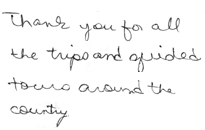 Thank you for all
the trips and guided
tours around the
country